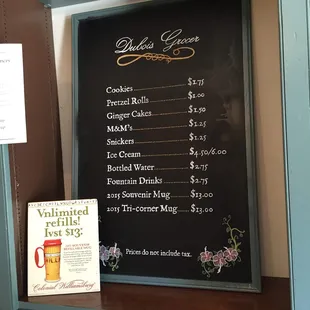 Dubois Grocer
Cookies $1.75
Pretzel Rolls $1.00
Ginger Cakes $1.50
M&M's $1.25
Snickers $1.25
Ice Cream $4.50/6.00
Bottled Water $2.75
Fountain Drinks $2.75
2015 Souvenir Mug $13.00
2015 Tri-corner Mug $13.00
Prices do not include tax.
Vnlimited
refills!
Ivst $13!
Colonial Williamsburg